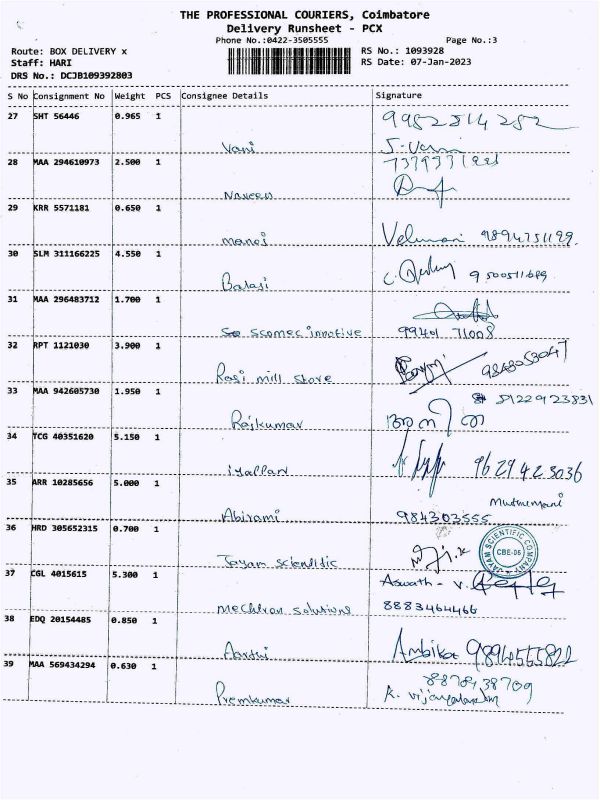 THE PROFESSIONAL COURIERS, Coimbatore
Delivery Runsheet - PCX
Phone No.:0422-3505555 Page No.:3
Route: BOX DELIVERY x RS No.: 1093928
Staff: HARI RS Date: 07-Jan-2023
DRS No.: DCJB109392803
S No Consignment No Weight PCS Consignee Details Signature
27 SHT 56446 0.965 1 9952814252
Vani S. Vani
28 MAA 294610973 2.500 1
Naveen
29 KRR 5571181 0.650 1
Manoj Velmani 9894751199
30 SLM 311166225 4.550 1
Balaji
31 MAA 296483712 1.700 1
scomec innotive 99401 71008
32 RPT 1121030 3.900 1
Rasi mill store 9843053047
33 MAA 942605730 1.950 1 8122923831
Rajkumar
34 TCG 40351620 5.150 1
Iyallan 9629423036
35 ARR 10285656 5.000 1
Abirami 984303555
36 HRD 305652315 0.700 1
Jayam scientific JAYAM SCIENTIFIC COMPANY CBE-06
37 CGL 4015615 5.300 1 Aswath - V.
Mechtran solutions 8883464466
38 EDQ 20154485 0.850 1
Ambika
39 MAA 569434294 0.630 1 8870438709
Premkumar